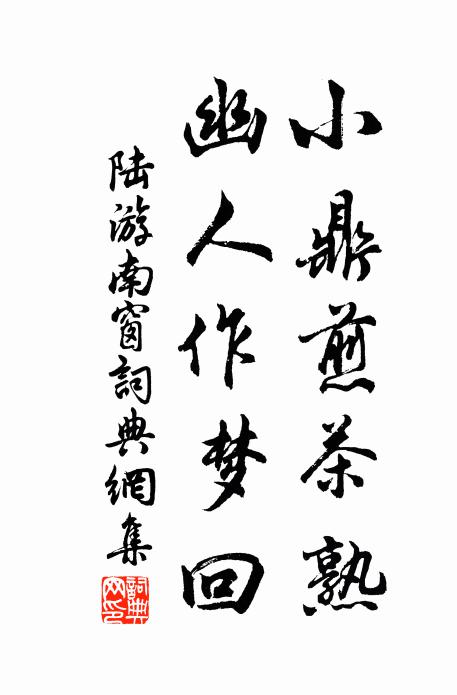 小鼎煎茶熟
幽人作梦回
陆游南窗詞典網集
詞典
网印